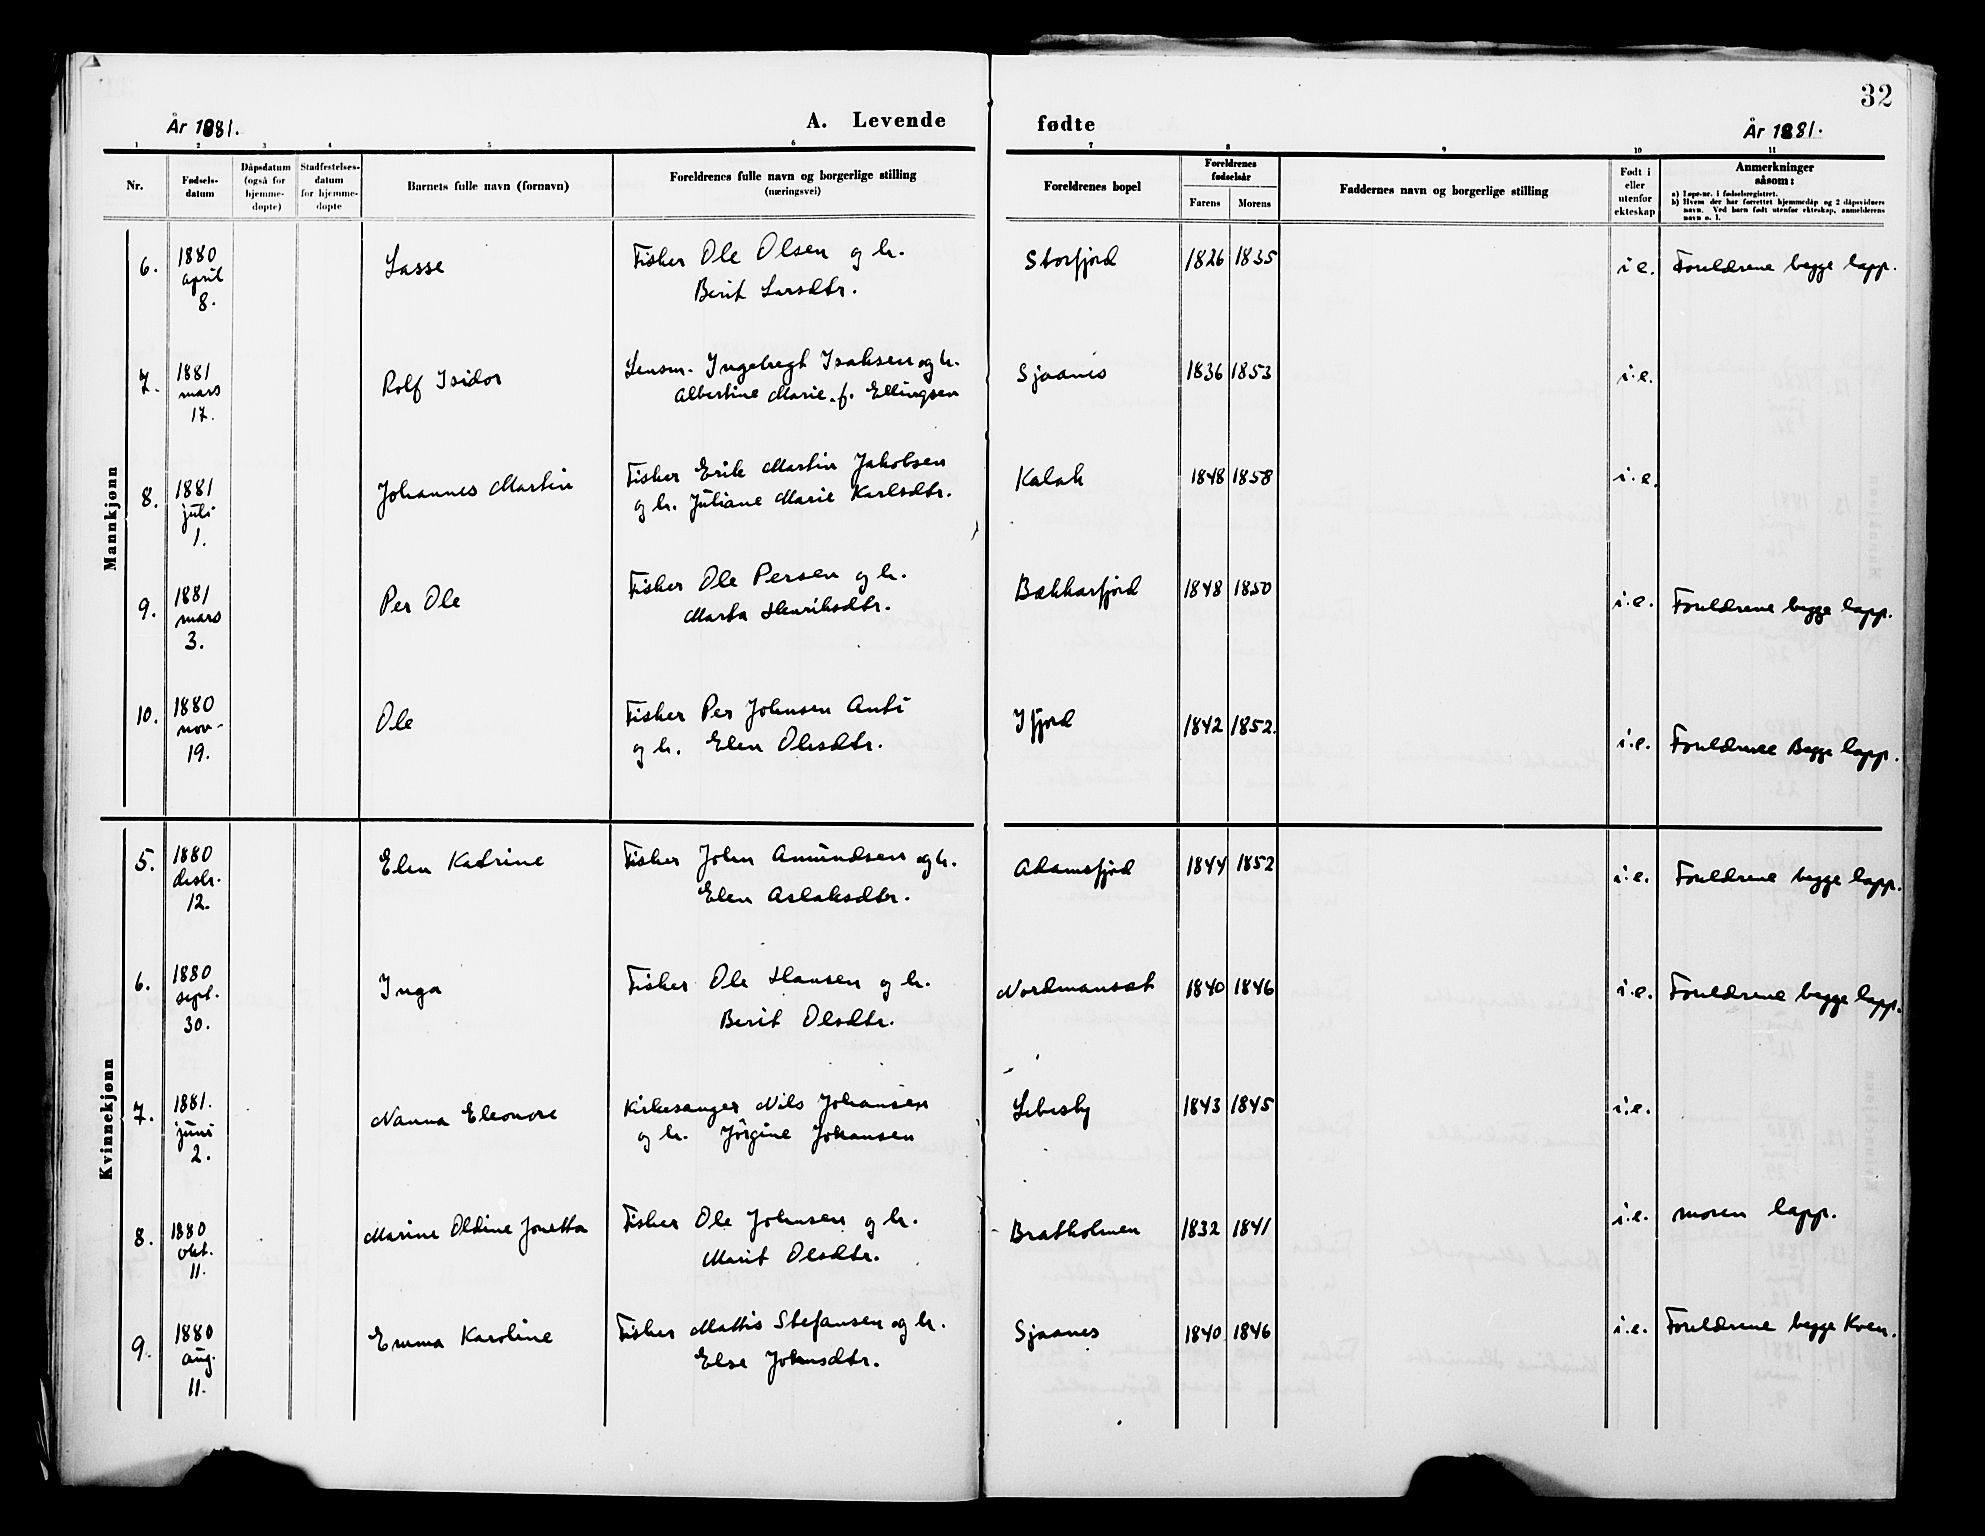 32
År 1881.
A. Levende
fødte
År 1881.
1 2 3 4 5 6 7 8 9 10 11
Nr.
Fødsels-
datum
Dåpsdatum
(også for
hjemme-
døpte)
Stadfestelses-
datum
for hjemme-
døpte
Barnets fulle navn (fornavn)
Foreldrenes fulle navn og borgerlige stilling
(næringsvei)
Foreldrenes bopel
Foreldrenes
fødselsår
Farens Morens
Faddernes navn og borgerlige stilling
Født i
eller
utenfor
ekteskap
Anmerkninger
såsom:
a) Løpe-nr. i fødselsregistret.
b) Hvem der har forrettet hjemmedåp og 2 dåpsvidners
navn. Ved barn født utenfor ekteskap, anmelderens
navn o. l.
Mannkjønn
6. 1880 april 8. Lasse Fisker Ole Olsen og h.
Berit Larsdtr. Storfjord 1826 1835 i e. Foreldrene begge lapp.
7. 1881 mars 17. Rolf Isidor Lensm. Ingebregt Isaksen og h.
Albertine Marie f. Ellingsen Sjaanes 1836 1853 i.e.
8. 1881 juli 1. Johannes Martin Fisker Erik Martin Jakobsen
og h. Juliane Marie Karlsdtr. Kalak 1848 1858 i.e.
9. 1881 mars 3. Per Ole Fisker Ole Persen og h.
Marta Henriksdtr. Bækkarfjord 1848 1850 i.e. Foreldrene begge lapp.
10. 1880 nov. 19. Ole Fisker Per Johnsen Anti
og h. Elen Olesdtr. Ifjord 1842 1852. i.e. Foreldrene Begge lapp.
Kvinnekjønn
5. 1880 desbr. 12. Elen Katrine Fisker John Amundsen og h.
Elen Aslaksdtr. Adamsfjord 1844 1852 i.e. Foreldrene begge lapp.
6. 1880 sept. 30. Inga Fisker Ole Hansen og h.
Berit Olsdtr. Nordmanset 1840 1846 i.e. Foreldrene begge lapp.
7. 1881. juni 2. Nanna Eleonore Kirkesanger Nils Johansen
og h. Jörgine Johansen Lebesby 1843 1845 i.e.
8. 1880 okt. 11. Marine Oldine Jonetta Fisker Ole Johnsen og h.
Marit Olsdtr. Bratholmen 1832 1841 i.e. moren lapp.
9. 1880 aug. 11. Emma Karoline Fisker Mattis Stefansen og h.
Else Johnsdtr. Sjaanes 1840 1846 i.e. Foreldrene begge Kven.